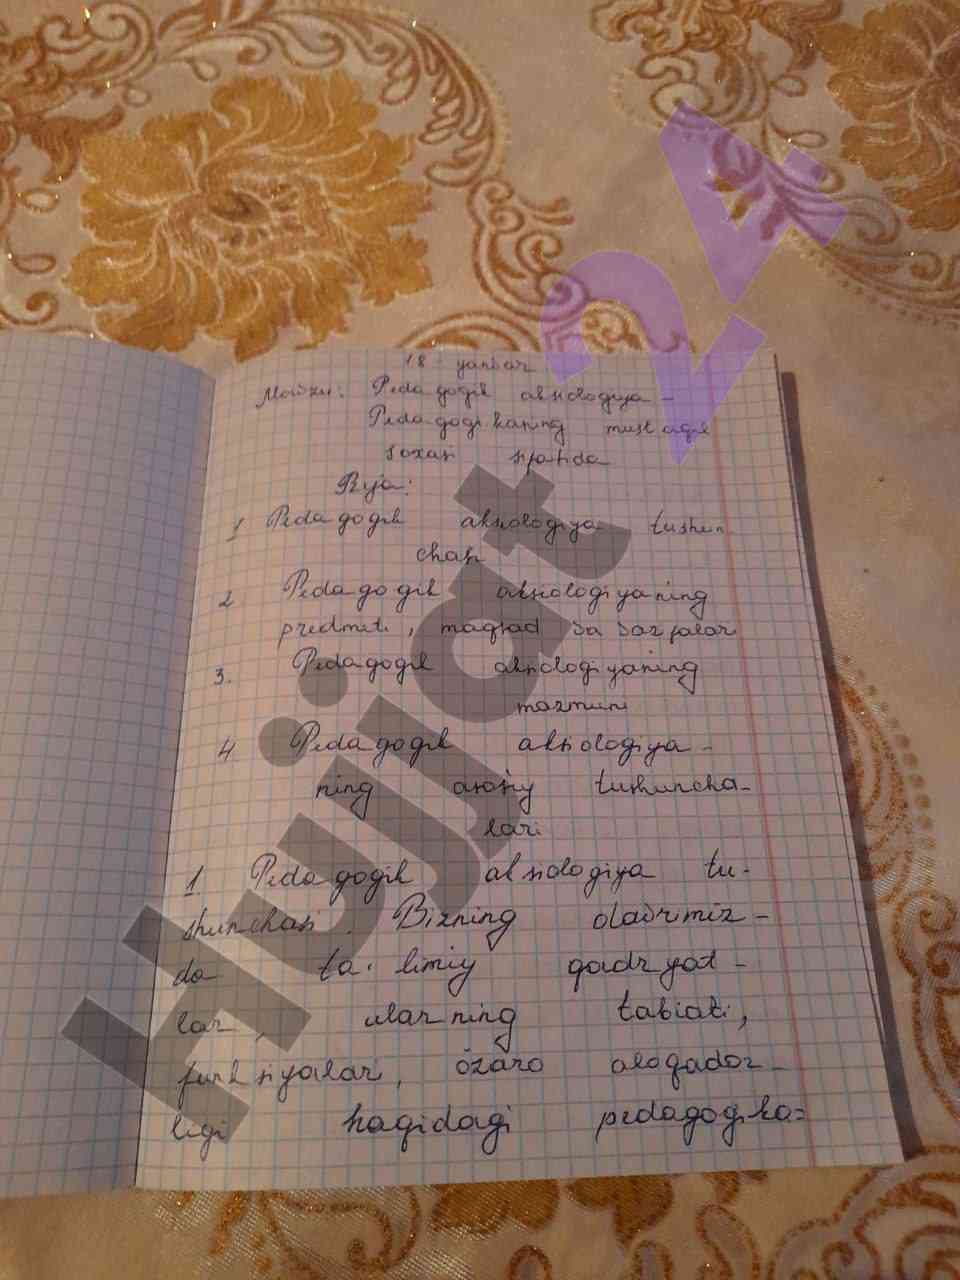 18 yanvar
Mavzu: Pedagogik aksiologiya -
Pedagogikaning mustaqil
soxasi sifatida
Reja:
1 Pedagogik aksiologiya tushun
chasi
2 Pedagogik aksiologiyaning
predmeti, maqsad va vazifalari
3. Pedagogik aksiologiyaning
mazmuni
4 Pedagogik aksiologiya -
ning asosiy tushuncha-
lari.
1 Pedagogik aksiologiya tu-
shunchasi. Bizning davrimiz-
da ta'limiy qadryat-
lar, ularning tabiati,
funksiyalari, o'zaro aloqador-
ligi haqidagi pedagogika-
Hujjat 24